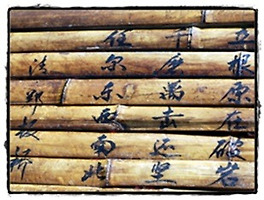 立根原在破岩
千磨萬击还坚
任尔东西南北
清郑板桥